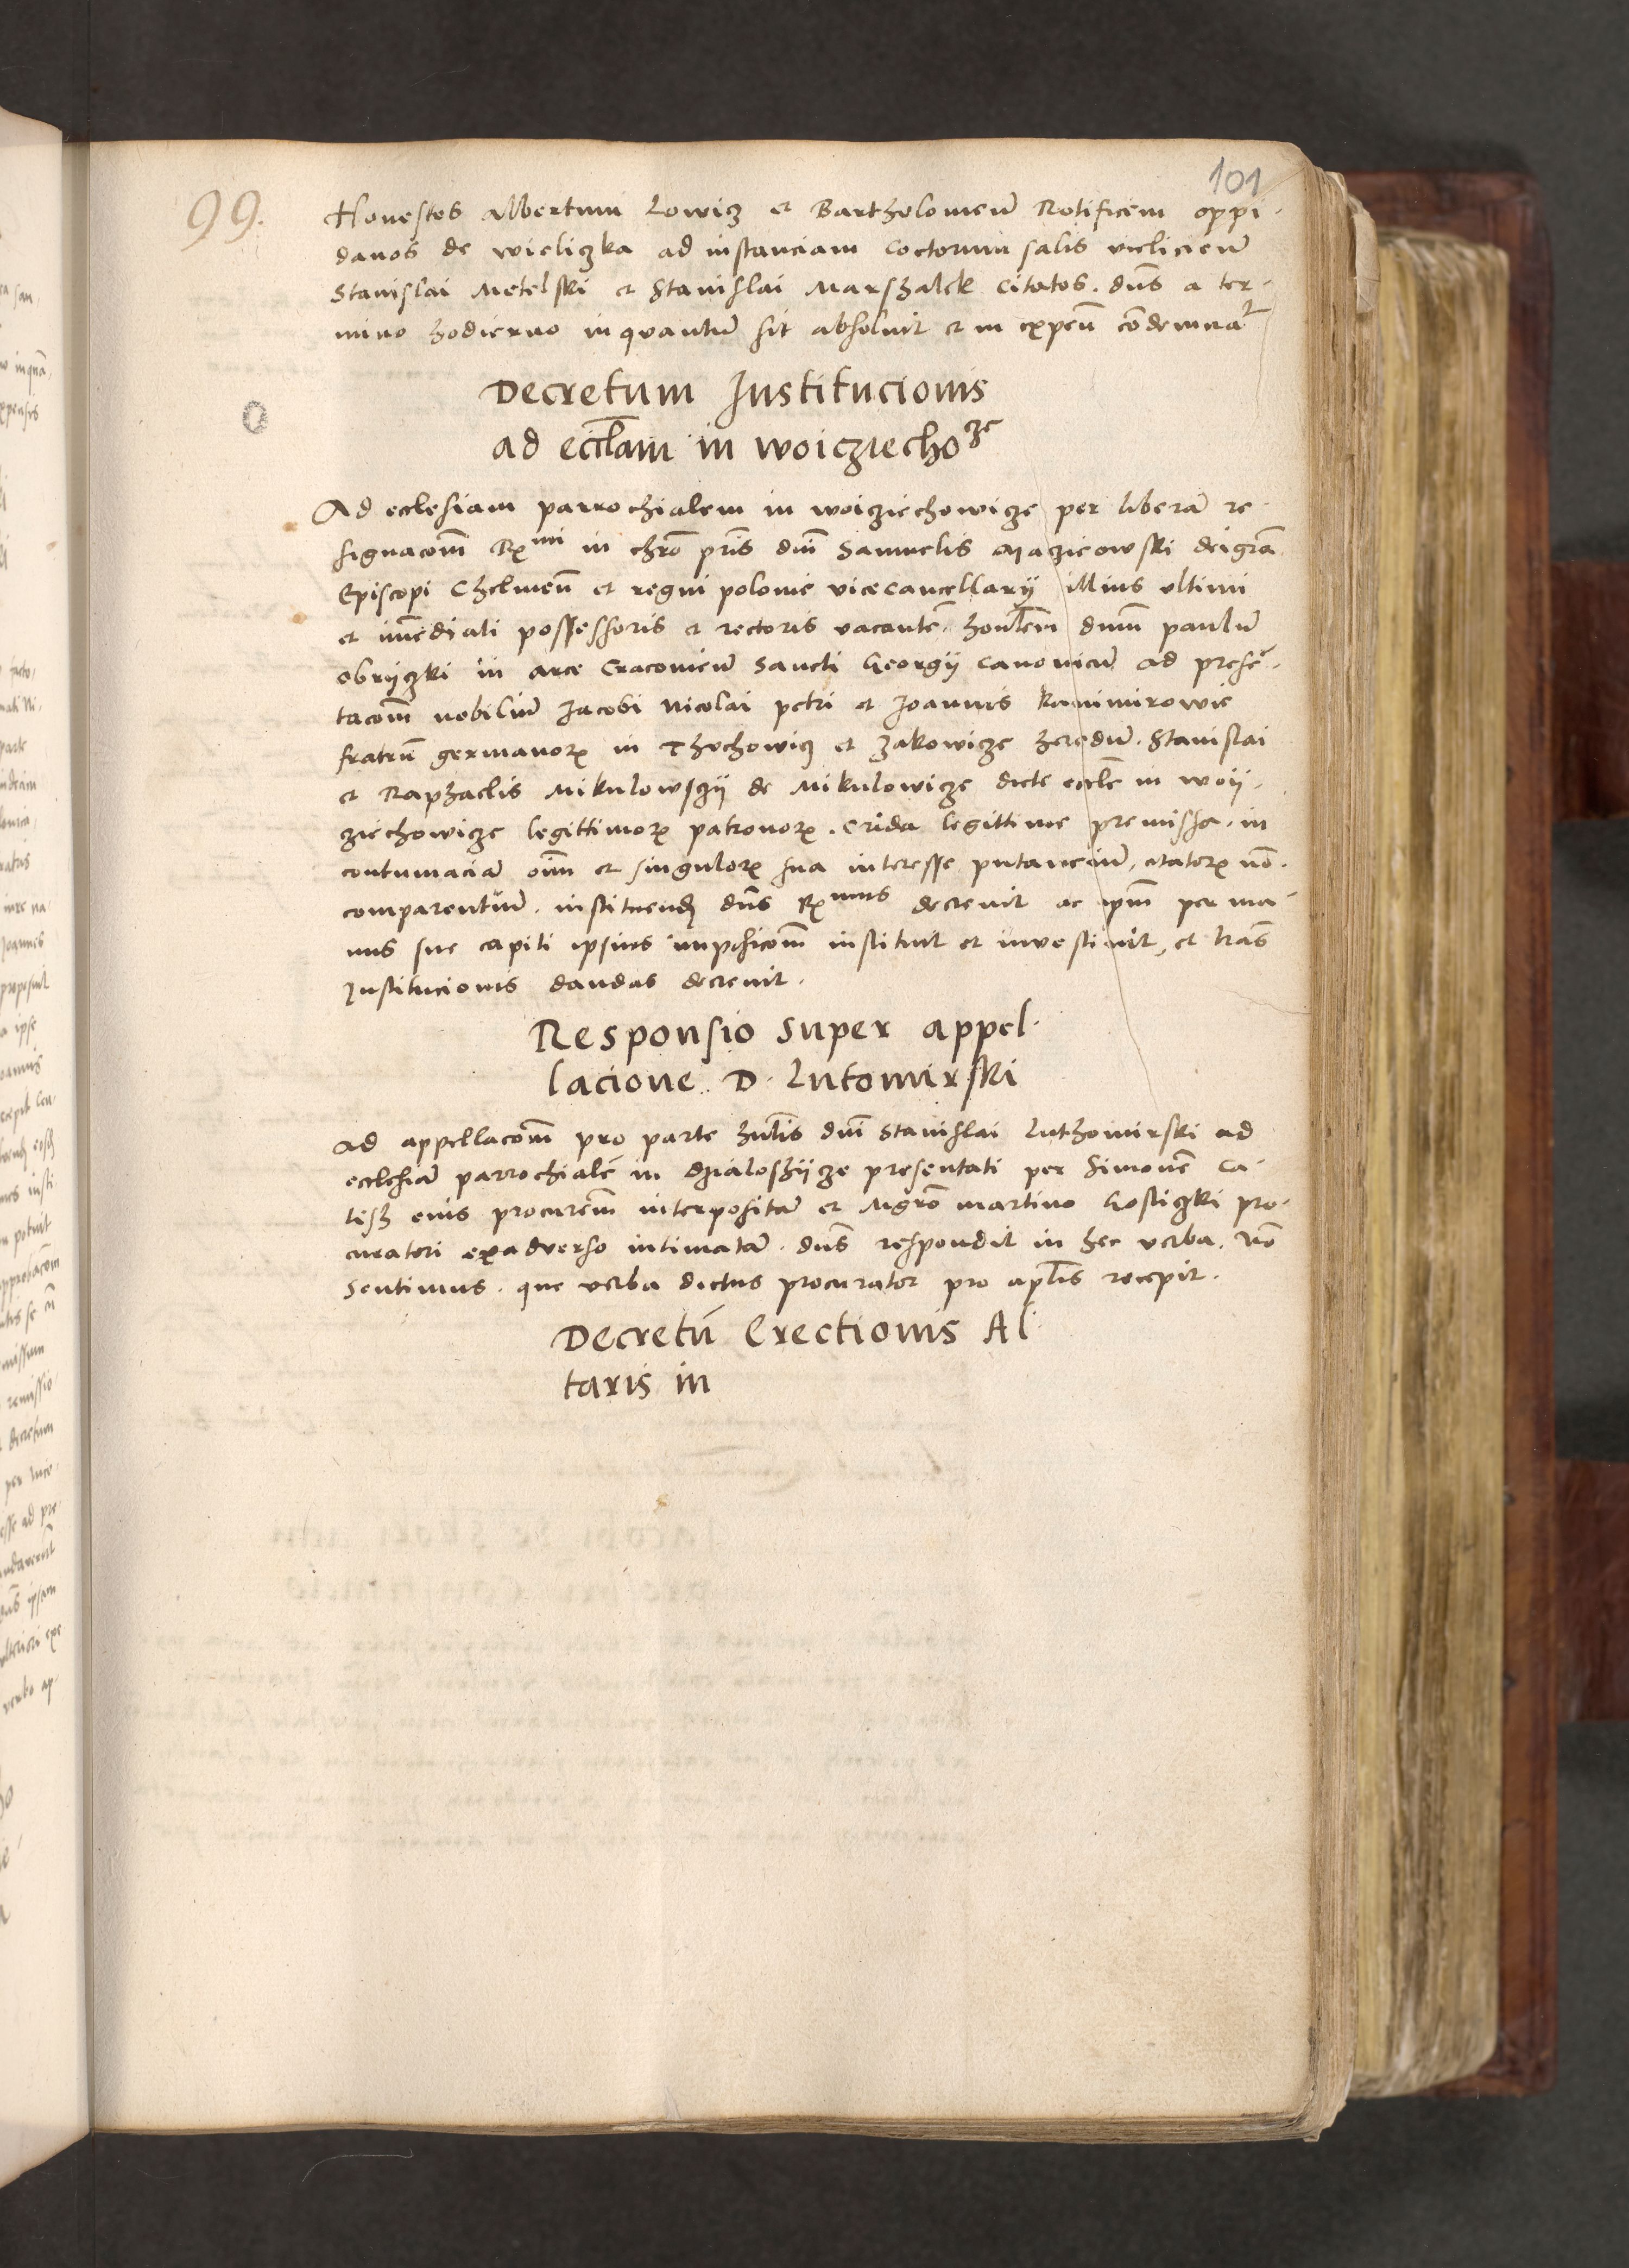 101
99.
Honestos Albertum Lowicz et Bartholomeū Rotificem oppi-
danos de Wieliczka ad instanciam Coctorum salis vielicień
Stanislai Metelski et Stanislai Marszalck citatos. dn̄s a ter-
mino hodierno inquantū sit absolvit et in expeń cōdemnat
Decretum Institucionis
ad eccl̄am in Woicziechoᶻᵉ
Ad ecclesiam parrochialem in Woicziechowicze per liberā re-
signacōm Rᵐⁱ in chrō pris dn̄i Samuelis Maczieowski dei gr̄a
Episcopi Chelmeń et regni polonie vicecancellarij illius ultimi
et īmediati possessoris et rectoris vacantē. honlem dn̄m paulū
obryczki in arce Cracovień Sancti Georgij Canonicū ad presē-
tacōm nobiliū Jacobi Nicolai petri et Joannis Kanimirowie
fratrū germanoꝝ in Thochowicz et Zakowicze heredū. Stanislai
et Raphaelis Mikulowsczij de Mikulowicze dicte eccl̄e in Woy-
cziechowicze legittimoꝝ patronoꝝ. crida legittime premissa. in
contumaciā oīm et singuloꝝ sua interesse putanciū, citatoꝝ nō
comparentiū. instituenđ dn̄s Rᵐᵘˢ decrevit ac ip̄m per ma-
nus sue capiti ipsius impōsicōm instituit et investivit, et l̄ras
Institucionis dandas decrevit.
Responsio super appel-
lacione D. Lutomirski
Ad appellacōm pro parte hn̄lis dn̄i Stanislai Luthomirski ad
ecclesiā parrochialē in Dzialoszycze presentati per Simonē Ca-
lisz eius procurem̄ interpositā et Mgr̄o martino Gosticzki pro-
curatori exadverso intimatā. dn̄s respondit in hec verba. Nō
Sentimus. que verba dictus procurator pro ap̄lis recepit.
Decretū Erectionis Al-
taris in